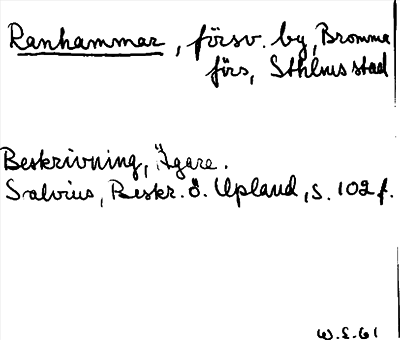 Ranhammar, försv. by, Bromma
förs, Sthlms stad
Beskrivning, Ägare.
Salvius, Beskr. ö. Upland, s. 102 f.
W.S. 61